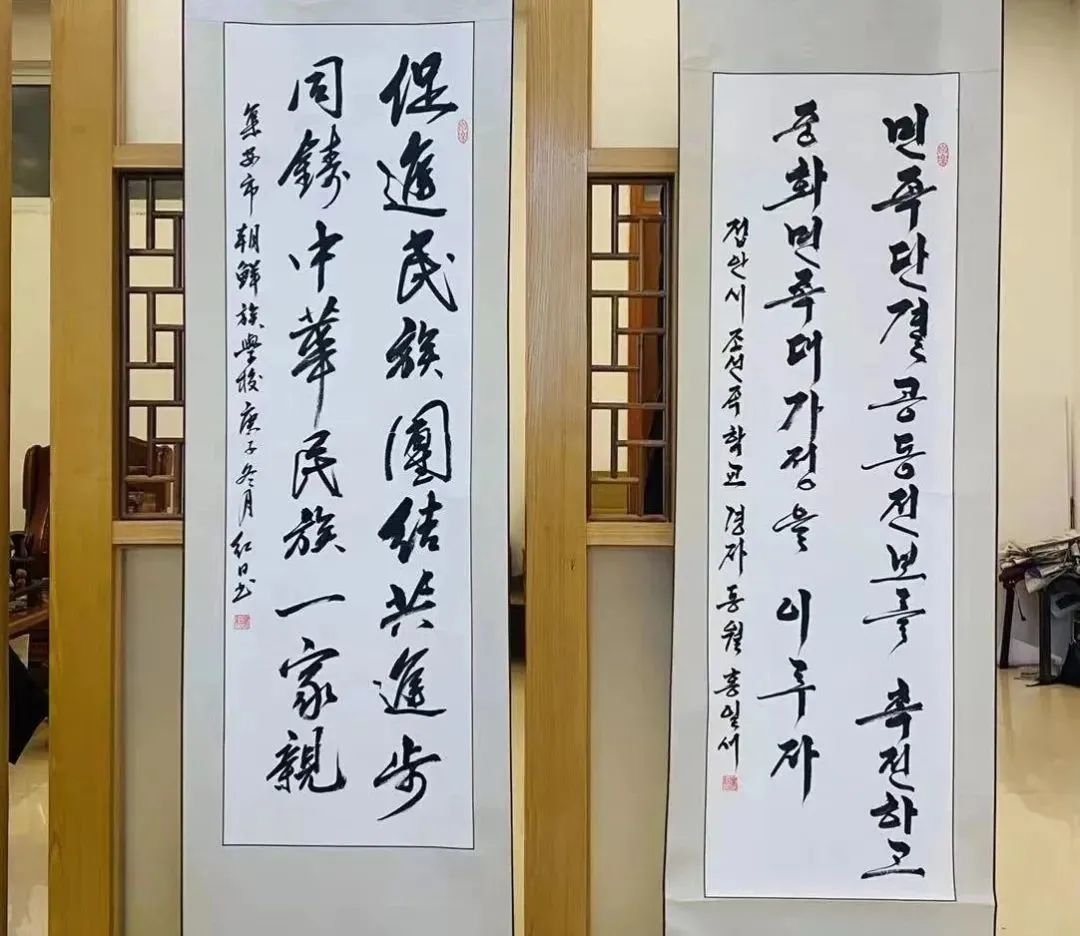 促進民族團結共進步
同鑄中華民族一家親
集安市朝鮮族學校 庚子冬月 紅日书
민족단결공동진보를 촉진하고
중화민족대가정을 이루자
집안시 조선족학교 경자 동월 홍일서